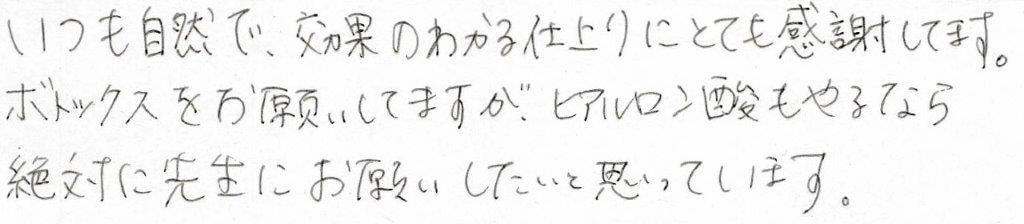 いつも自然で、効果のわかる仕上りにとても感謝してます。
ボトックスをお願いしてますが、ヒアルロン酸もやるなら
絶対に先生にお願いしたいと思っています。